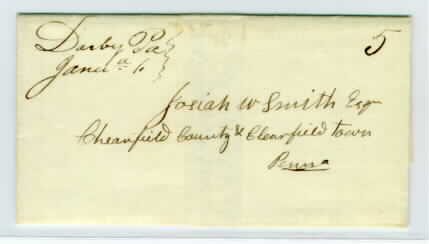 Darby Pa
Janu.a 6
5
Josiah W Smith Esqr
Chearfield County & Clearfield town
Penna